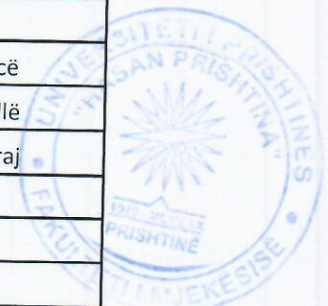 cë
lë
raj
UNIVERSITETI I PRISHTINËS
"HASAN PRISHTINA"
PRISHTINË
FAKULTETI I MJEKËSISË